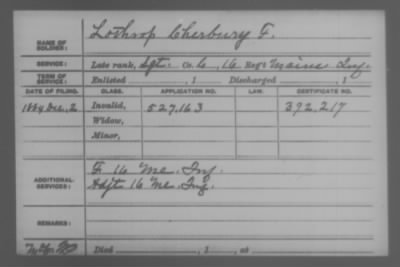 Lothrop Cherbury F.
NAME OF SOLDIER:
SERVICE: Late rank, Sgt. Co. G, 16 Reg't Maine Inf.
TERM OF SERVICE: Enlisted , 1 Discharged , 1
DATE OF FILING. CLASS. APPLICATION NO. LAW. CERTIFICATE NO.
Dec. 2 Invalid, 527,163 392,217
Widow,
Minor,
F 16 Me. Inf.
ADDITIONAL SERVICES: Adjt. 16 Me. Inf.
REMARKS:
Died , 1 , at